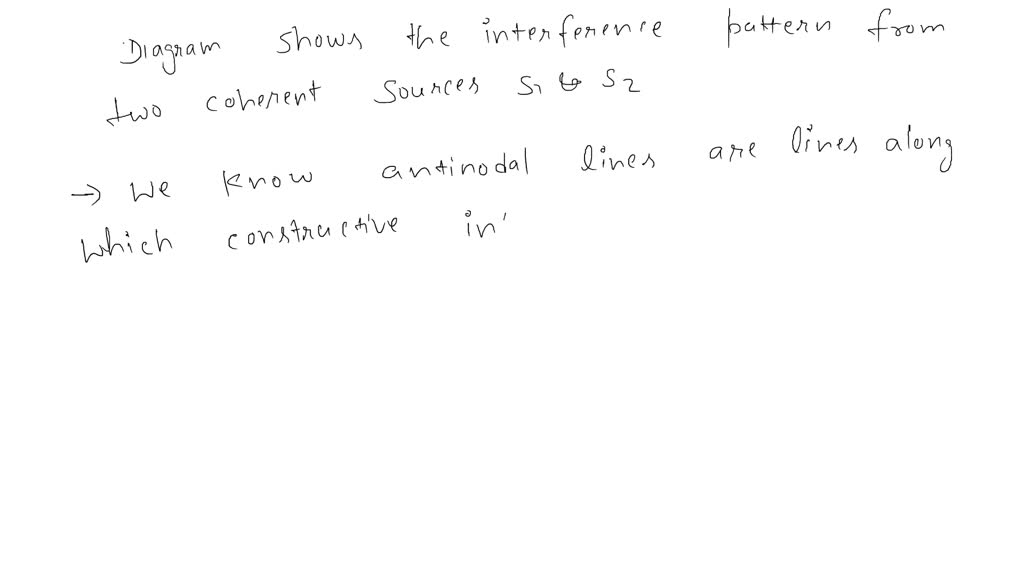 Diagram shows the interference pattern from
two coherent sources S1 & S2
→ We know antinodal lines are lines along
which constructive in'